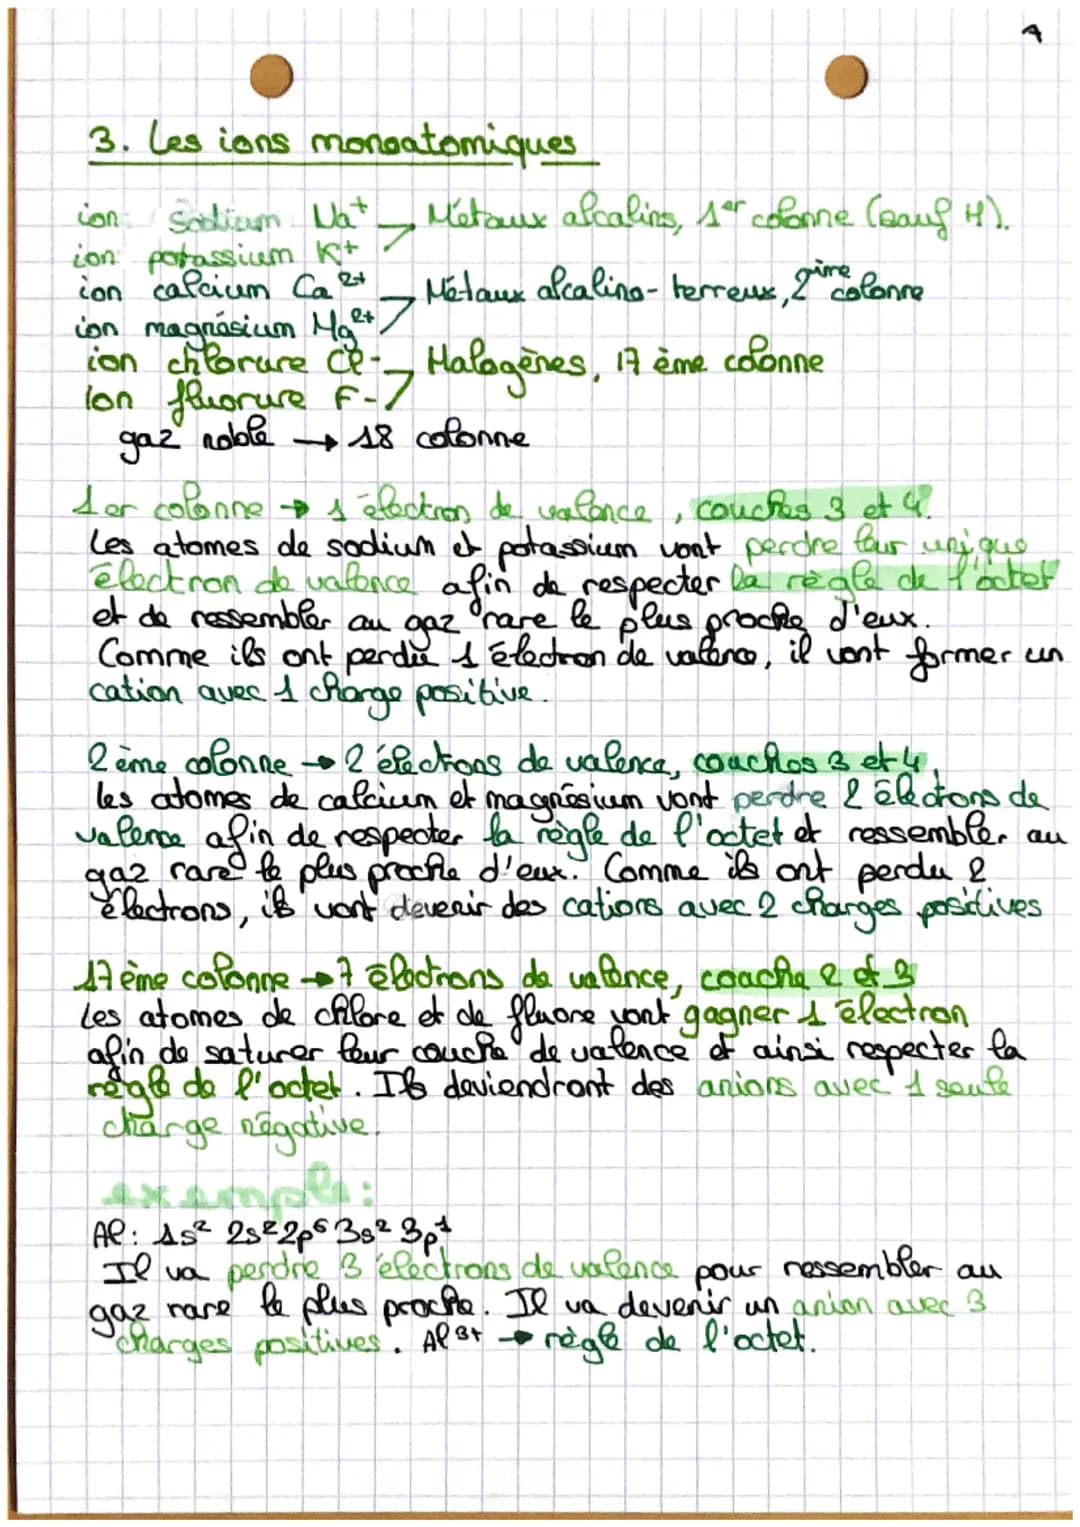 3. Les ions monoatomiques
ion Sodium Na+ → Métaux alcalins, 1er colonne (sauf H).
ion potassium K+
ion calcium Ca 2+ → Métaux alcalino-terreux, 2ième colonne
ion magnésium Mg2+
ion chlorure Cl- → Halogènes, 17 ème colonne
ion fluorure F-
gaz noble → 18 colonne
1er colonne → 1 électron de valence, couches 3 et 4.
Les atomes de sodium et potassium vont perdre leur unique
électron de valence afin de respecter la règle de l'octet
et de ressembler au gaz rare le plus proche d'eux.
Comme ils ont perdu 1 électron de valence, il vont former un
cation avec 1 charge positive.
2ème colonne → 2 électrons de valence, couches 3 et 4.
les atomes de calcium et magnésium vont perdre 2 électrons de
valence afin de respecter la règle de l'octet et ressembler au
gaz rare le plus proche d'eux. Comme ils ont perdu 2
électrons, ils vont devenir des cations avec 2 charges positives
17ème colonne → 7 électrons de valence, couche 2 et 3
Les atomes de chlore et de fluore vont gagner 1 électron
afin de saturer leur couche de valence et ainsi respecter la
règle de l'octet. Ils deviendront des anions avec 1 seule
charge négative.
exemple :
Al : 1s² 2s² 2p⁶ 3s² 3p¹
Il va perdre 3 électrons de valence pour ressembler au
gaz rare le plus proche. Il va devenir un anion avec 3
charges positives. Al 3+ → règle de l'octet.